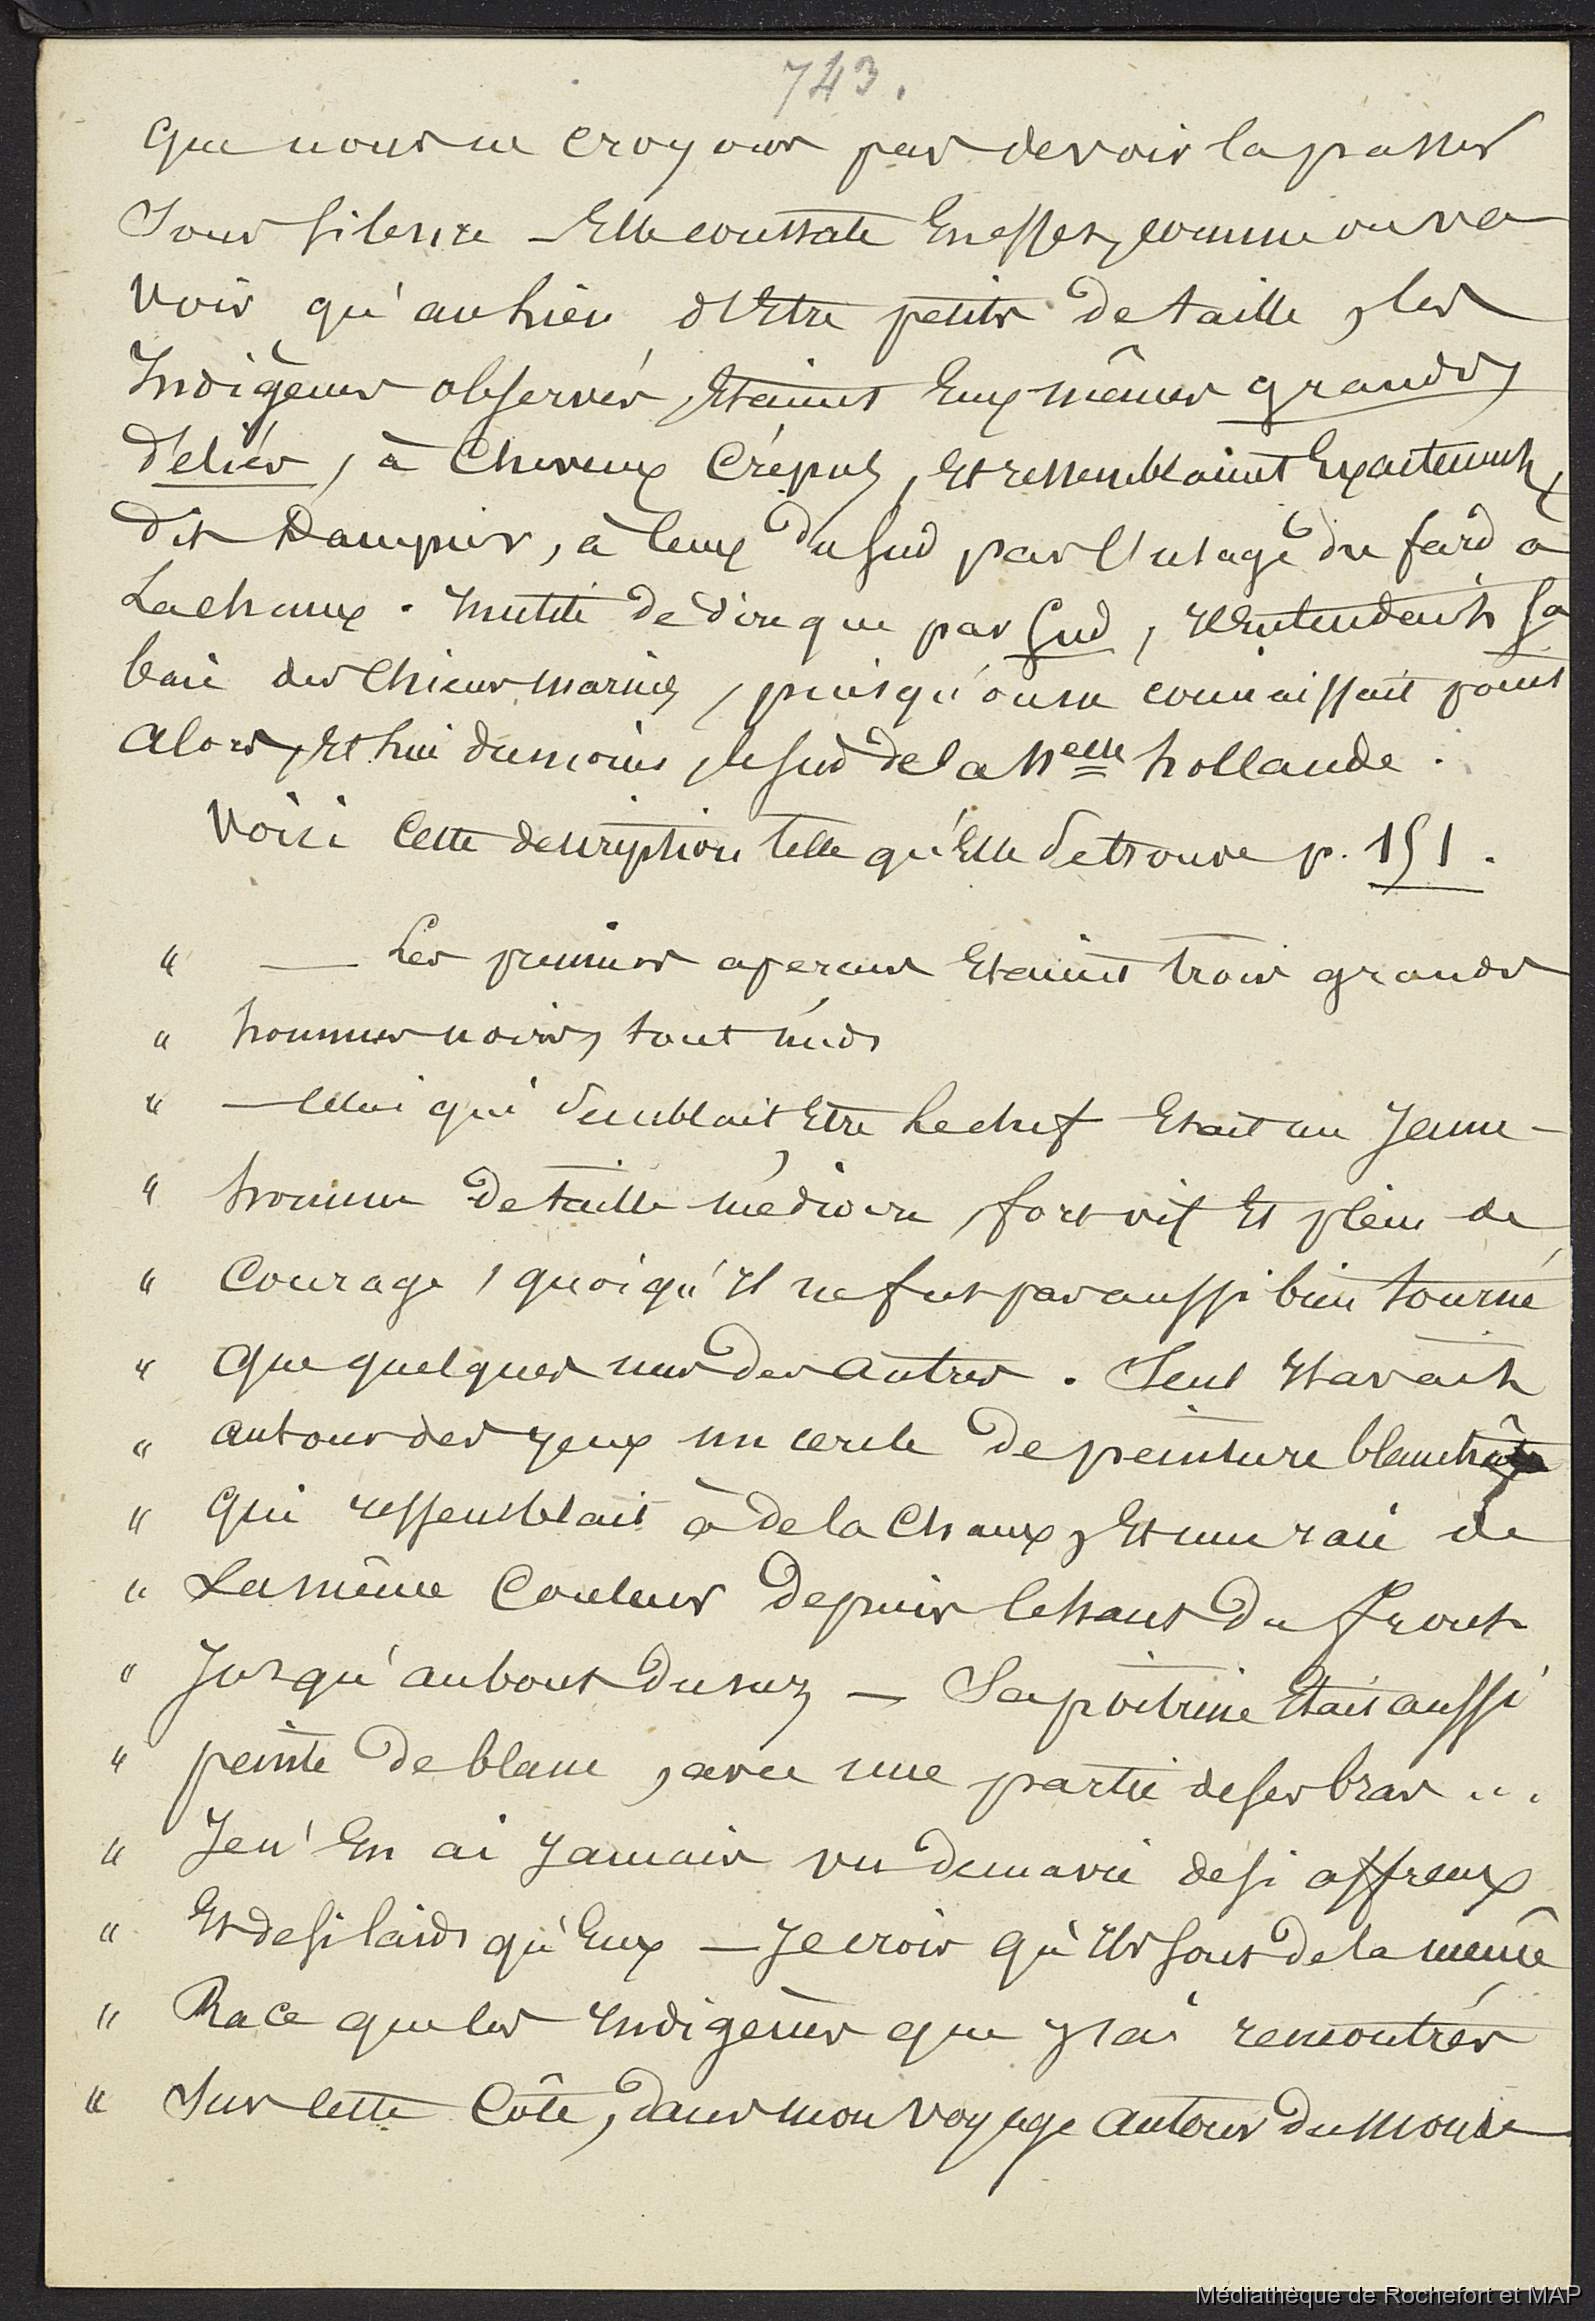 743.
que nous ne croyons pas devoir la passer
sous silence – Elle constate En effet, comme on va
voir qu'au lieu d'Etre petits de taille, les
Indigènes observés, Etaient Eux mêmes grands,
déliés, à cheveux crépus, Et ressemblaient Exactement,
dit Dampier, à ceux du sud par l'usage du fard à
la chaux. Inutile de dire que par sud, Il entendait sa
baie des chiens marins, puisqu'on ne connaissait point
alors, Et lui du moins, le sud de la Nelle hollande.
Voici cette description telle qu'Elle se trouve p. 151.
" — Les premiers aperçus Etaient trois grands
" hommes noirs, tout nuds
" — Celui qui semblait Etre le chef Etait un Jeune –
" homme de taille médiocre, fort vif Et plein de
" courage, quoiqu'Il ne fut pas aussi bien tourné
" que quelques uns des autres. Seul Il avait
" autour des yeux un cercle de peinture blanchâtre
" qui ressemblait à de la chaux, Et une raie de
" la même couleur depuis le haut du front
" Jusqu'au bout du nez — Sa poitrine Etait aussi
" peinte de blanc, avec une partie de ses bras ...
" Je n'En ai Jamais vu de ma vie de si affreux
" Et de si laids qu'Eux — Je crois qu'Ils sont de la même
" Race que les Indigènes que J'ai rencontrés
" sur cette Côte, dans mon voyage autour du monde
Médiathèque de Rochefort et MAP